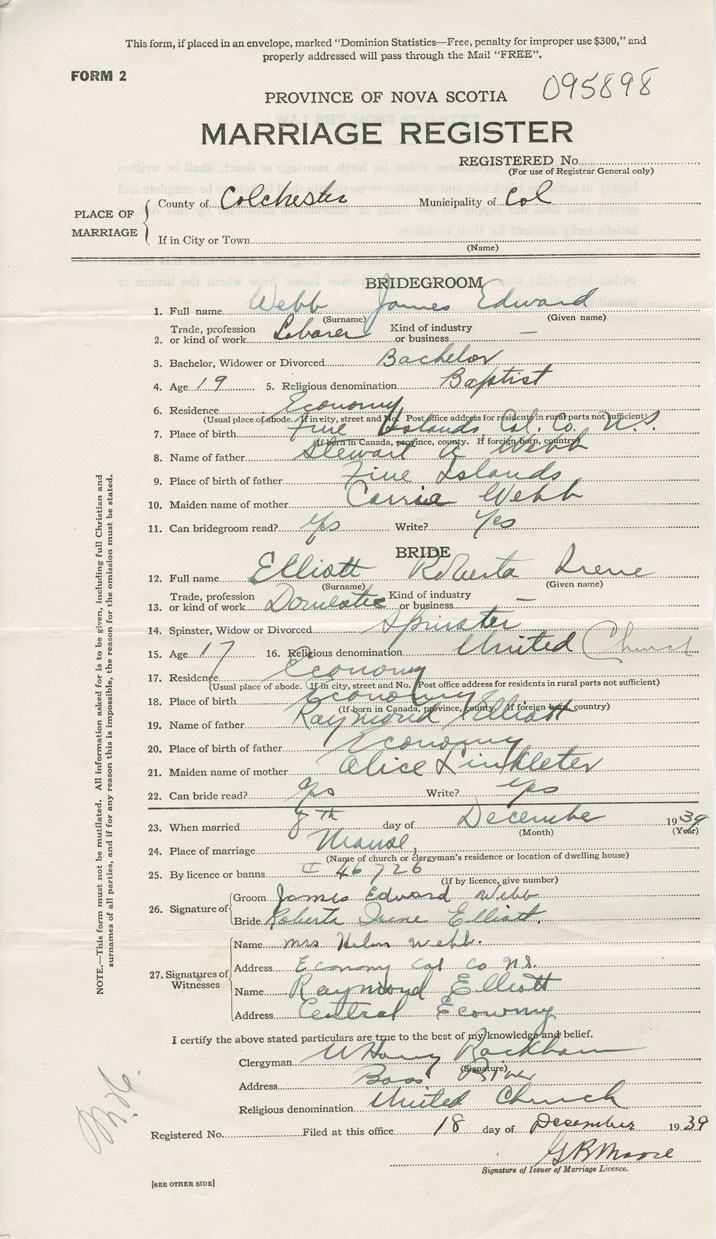 This form, if placed in an envelope, marked "Dominion Statistics—Free, penalty for improper use $300," and
properly addressed will pass through the Mail "FREE".
FORM 2
095898
PROVINCE OF NOVA SCOTIA
MARRIAGE REGISTER
REGISTERED No.
(For use of Registrar General only)
PLACE OF MARRIAGE
County of Colchester Municipality of Col
If in City or Town
(Name)
BRIDEGROOM
1. Full name Webb James Edward
(Surname) (Given name)
2. Trade, profession or kind of work Laborer Kind of industry or business —
3. Bachelor, Widower or Divorced Bachelor
4. Age 19 5. Religious denomination Baptist
6. Residence Economy
(Usual place of abode. If in city, street and No. Post office address for residents in rural parts not sufficient)
7. Place of birth Five Islands Col. Co. N.S.
(If born in Canada, province, county. If foreign born, country)
8. Name of father Stewart A Webb
9. Place of birth of father Five Islands
10. Maiden name of mother Carrie Webb
11. Can bridegroom read? yes Write? yes
BRIDE
12. Full name Elliott Roberta Irene
(Surname) (Given name)
13. Trade, profession or kind of work Domestic Kind of industry or business —
14. Spinster, Widow or Divorced Spinster
15. Age 17 16. Religious denomination United Church
17. Residence Economy
(Usual place of abode. If in city, street and No. Post office address for residents in rural parts not sufficient)
18. Place of birth Economy
(If born in Canada, province, county. If foreign born, country)
19. Name of father Raymond Elliott
20. Place of birth of father Economy
21. Maiden name of mother Alice Linkleter
22. Can bride read? yes Write? yes
23. When married 8th day of December 1939
(Month) (Year)
24. Place of marriage Manse
(Name of church or clergyman's residence or location of dwelling house)
25. By licence or banns 46726
(If by licence, give number)
26. Signature of
Groom James Edward Webb
Bride Roberta Irene Elliott.
27. Signatures of Witnesses
Name Mrs Helen Webb.
Address Economy Col Co N.S.
Name Raymond Elliott
Address Central Economy
I certify the above stated particulars are true to the best of my knowledge and belief.
Clergyman W Harry Rackham
(Signature)
Address Bass River
Religious denomination United Church
Registered No. Filed at this office 18 day of December 1939
G B Moore
Signature of Issuer of Marriage Licence.
[SEE OTHER SIDE]
NOTE.—This form must not be mutilated. All information asked for is to be given, including full Christian and
surnames of all parties, and if for any reason this is impossible, the reason for the omission must be stated.